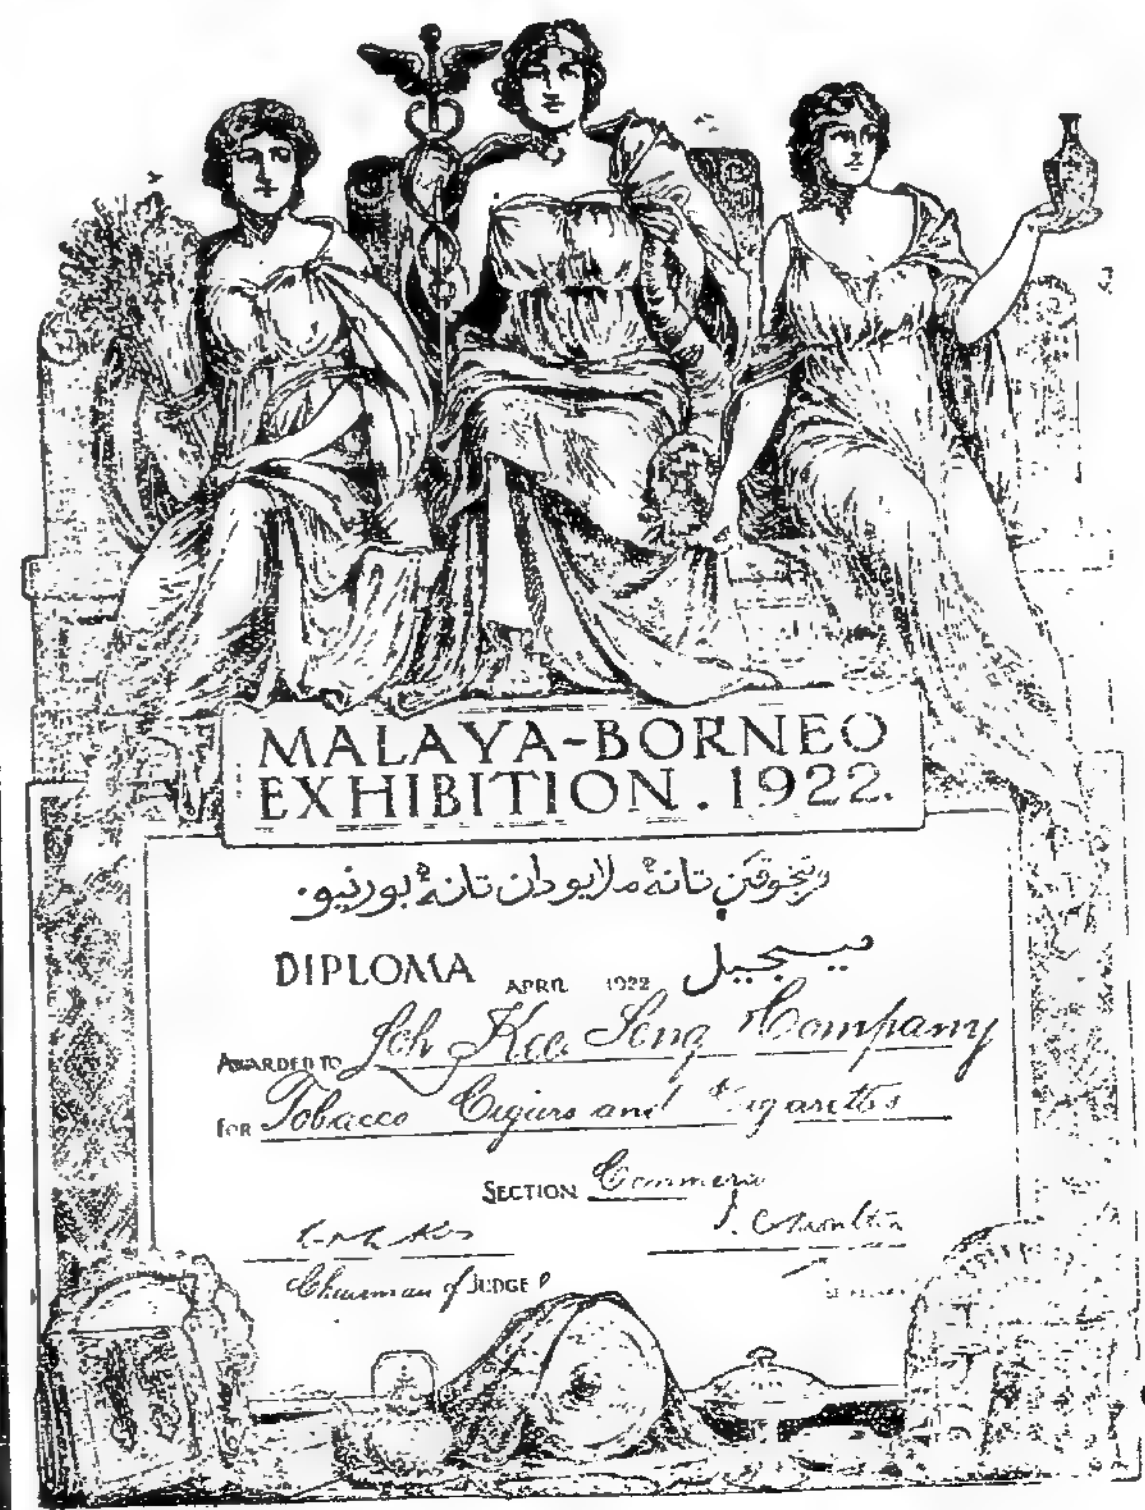 MALAYA-BORNEO
EXHIBITION. 1922.
تانه٢ ملايو دان تانه٢ بورنيو.
DIPLOMA APRIL 1922
AWARDED TO Soh Kee Seng Company
FOR Tobacco Cigars and Cigarettes
SECTION Commerce
Chairman of JUDGE